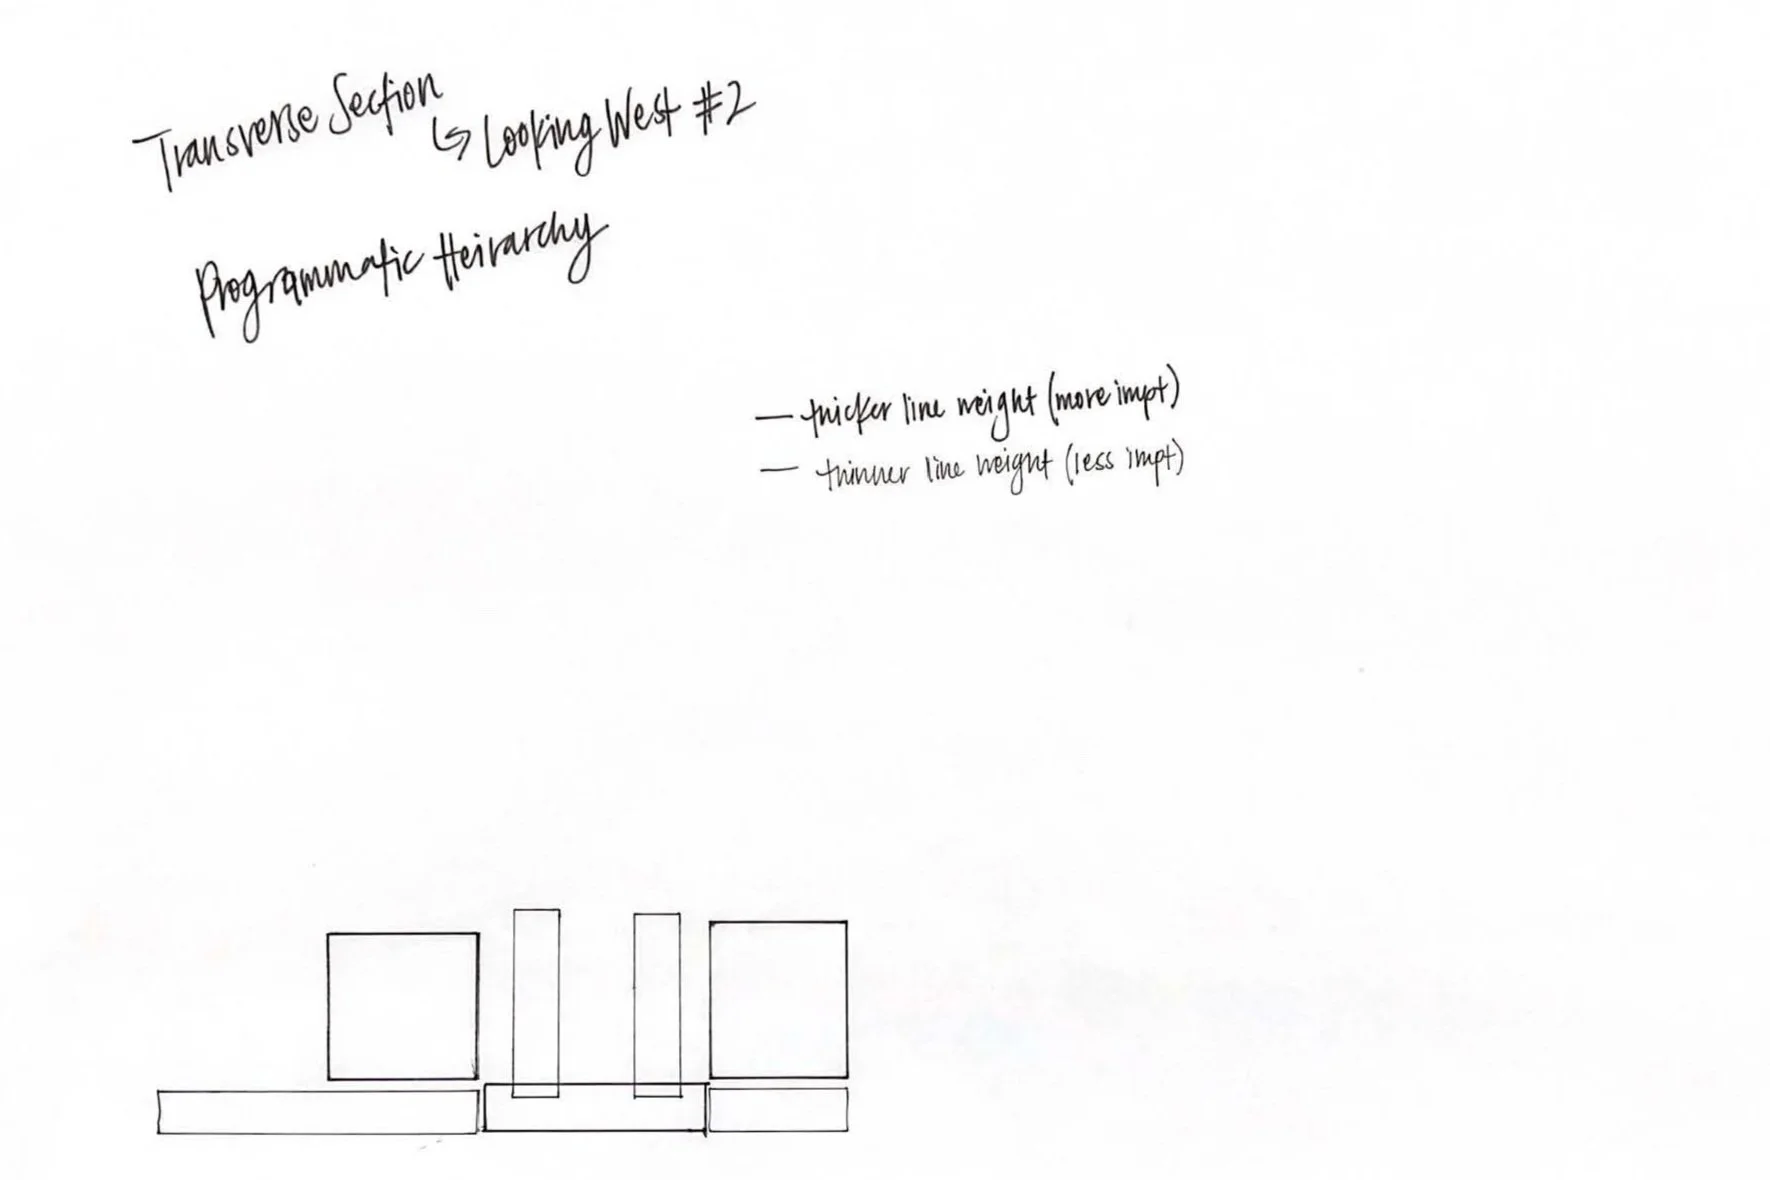 Transverse Section
↳ Looking West #2
Programmatic Heirarchy
— thicker line weight (more impt)
— thinner line weight (less impt)